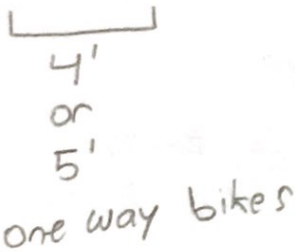 4'
or
5'
one way bikes